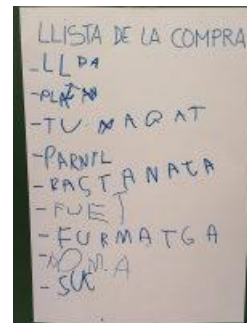 LLISTA DE LA COMPRA
-LL
-PLÀTAN
-TUMAQAT
-PARNIL
-PASTANAGA
-FUET
-FURMATGA
-POMA
-SUC